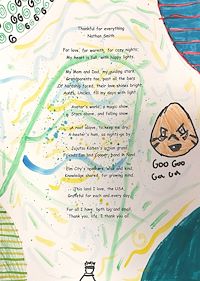 Thankful for everything
Nathan Smith
For love, for warmth, for cozy nights,
My heart is full, with happy lights.
My Mom and Dad, my guiding stars
Grandparents too, past all the bars
Of hardship faced, their love shines bright
Aunts, Uncles, fill my days with light.
Avatar's world, a magic show,
Stars above, and falling snow
A roof above, to keep me dry,
A heater's hum, as nights go by
Jujutsu Kaisen's action grand
Friends Eon and Cooper, hand in hand
Elm City's teachers, wise and kind,
Knowledge shared, for growing mind
This land I love, the USA,
Grateful for each and every day.
For all I have, both big and small,
Thank you, life, I thank you all
Goo Goo
Ga Ga